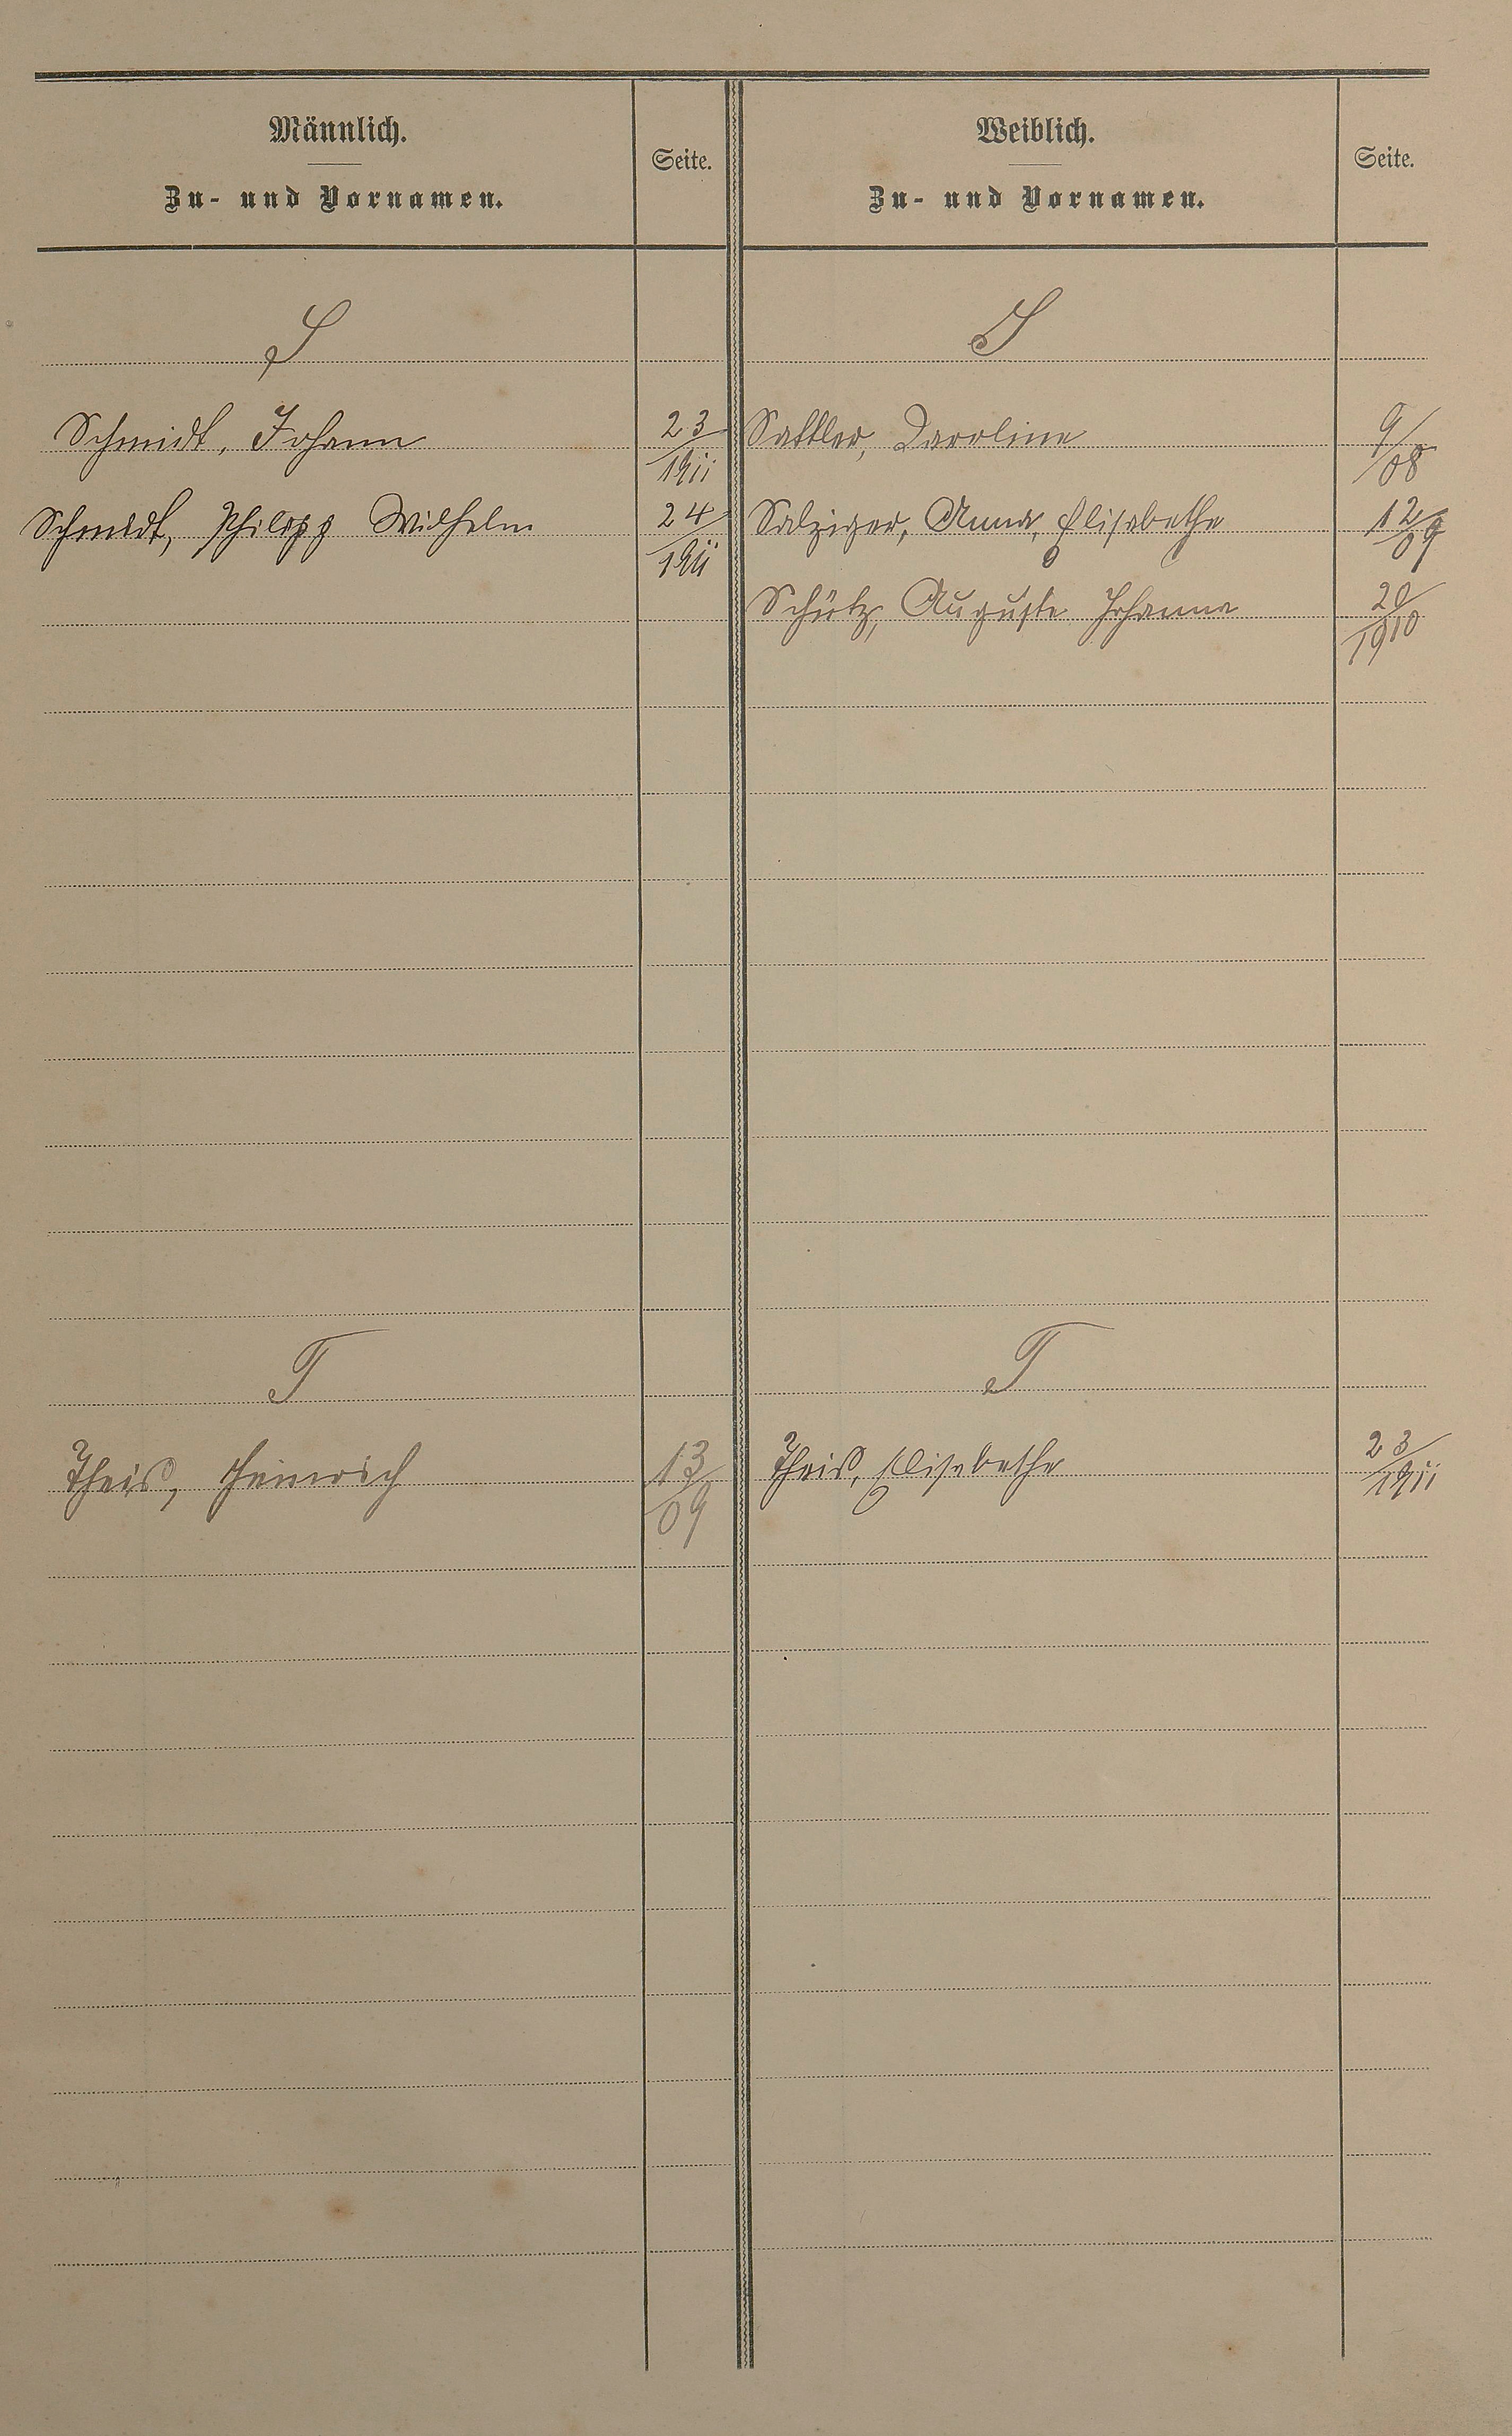 Männlich.
Zu- und Vornamen.
Seite.
Weiblich.
Zu- und Vornamen.
Seite.
S
S
Schmidt, Johann 23/1911
Sattler, Caroline 9/08
Schmidt, Philipp Wilhelm 24/1911
Salziger, Anna, Elisabethe 12/09
Schütz, Auguste Johanna 20/1910
T
T
Theis, Heinrich 13/09
Theis, Elisabethe 23/1911